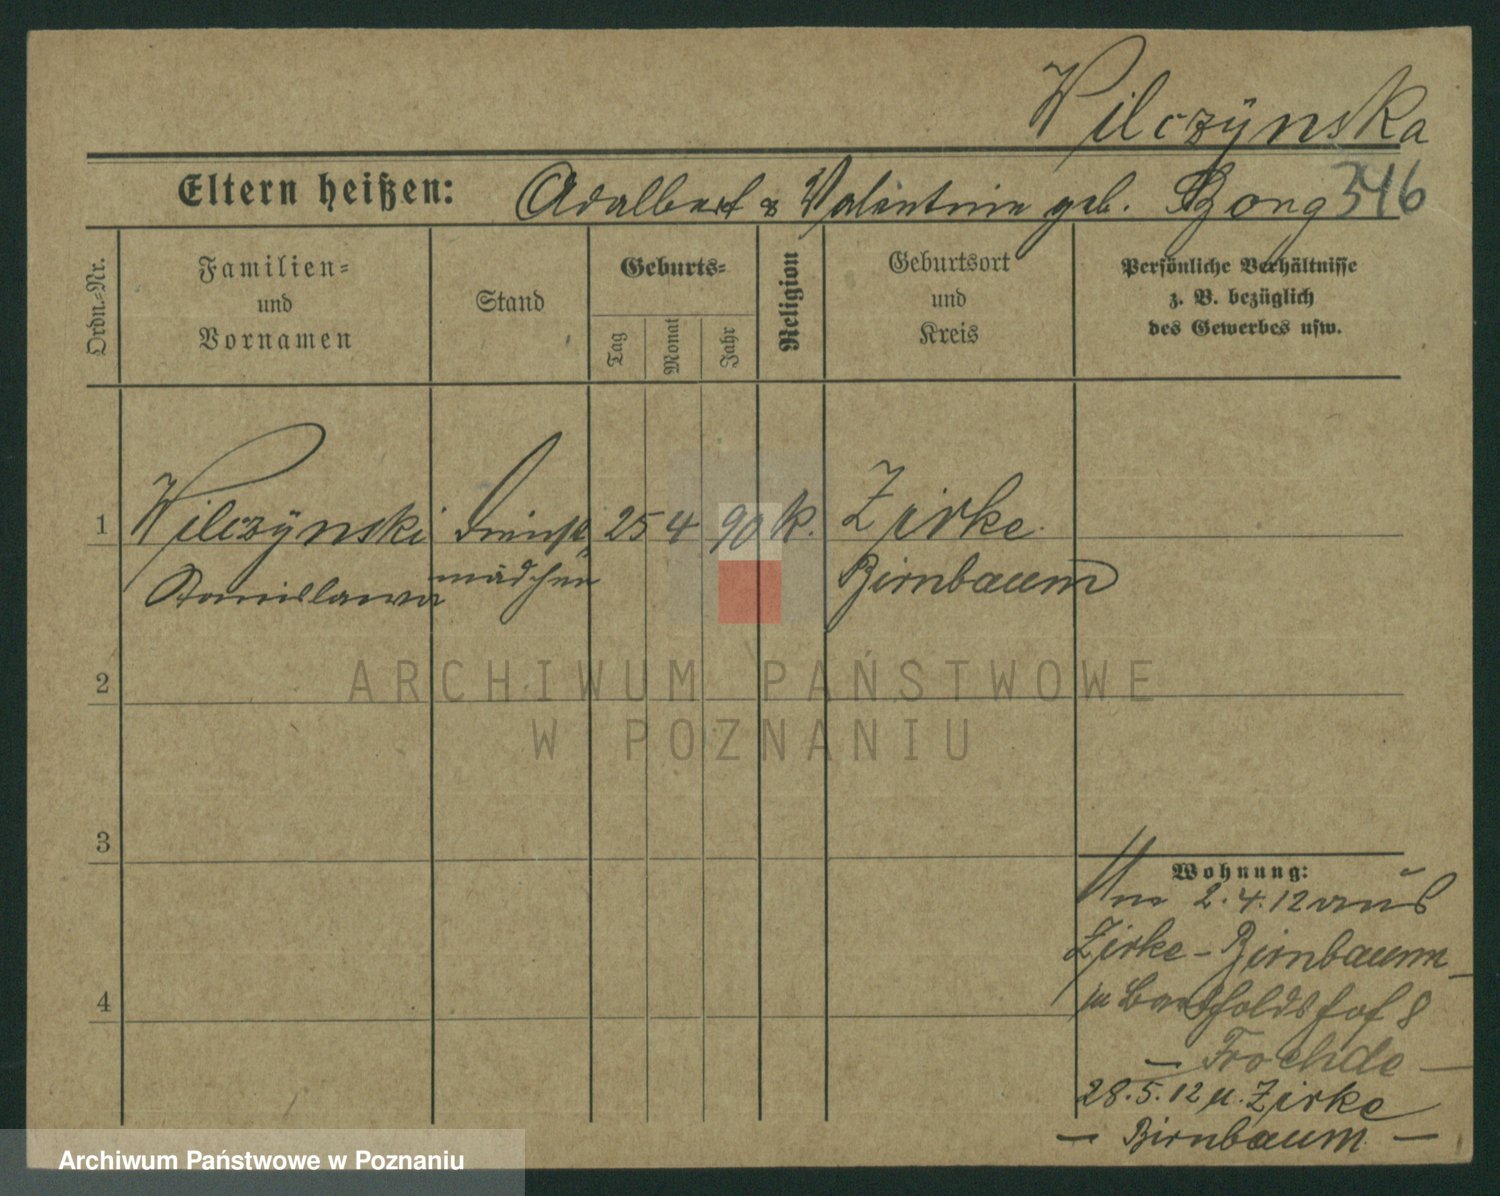 Wilczÿnska
346
Eltern heißen: Adalbert & Valentine geb.
Ordn.-Nr.
Familien-
und
Vornamen
Stand
Geburts-
Tag
Monat
Jahr
Religion
Geburtsort
und
Kreis
Persönliche Verhältnisse
z. B. bezüglich
des Gewerbes usw.
1
Wilczÿnski
Stanislawa
Dienst
mädchen
25
4
90
k.
Zirke
Birnbaum
2
3
4
Wohnung:
Am 2.4.12 aus
Zirke - Birnbaum
zu Bartholdshof 8
- Froehde -
28.5.12 n. Zirke
- Birnbaum -
ARCHIWUM PAŃSTWOWE
W POZNANIU
Archiwum Państwowe w Poznaniu